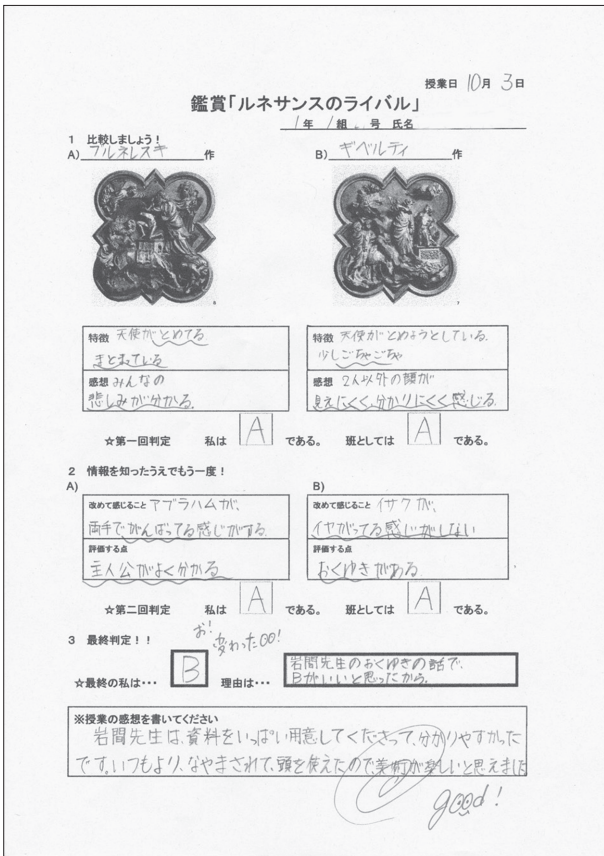 授業日 10月 3日
鑑賞「ルネサンスのライバル」
1年 1組 号 氏名
1 比較しましょう!
A) ブルネレスキ 作
B) ギベルティ 作
特徴 天使がとめてる
まとまっている
感想 みんなの
悲しみが分かる。
特徴 天使がとめようとしている。
少しごちゃごちゃ
感想 2人以外の顔が
見えにくく、分かりにくく感じる。
☆第一回判定 私は A である。 班としては A である。
2 情報を知ったうえでもう一度!
A)
改めて感じること アブラハムが、
両手でがんばってる感じがする。
評価する点
主人公がよく分かる
B)
改めて感じること イサクが、
イヤがってる感じがしない
評価する点
おくゆきがある。
☆第二回判定 私は A である。 班としては A である。
お!
変わった00!
3 最終判定!!
☆最終の私は・・・ B 理由は・・・
岩間先生のおくゆきの話で、
Bがいいと思ったから。
※授業の感想を書いてください
岩間先生は、資料をいっぱい用意してくださって、分かりやすかった
です。いつもより、なやまされて、頭を使えたので、美術が楽しいと思えました
good!